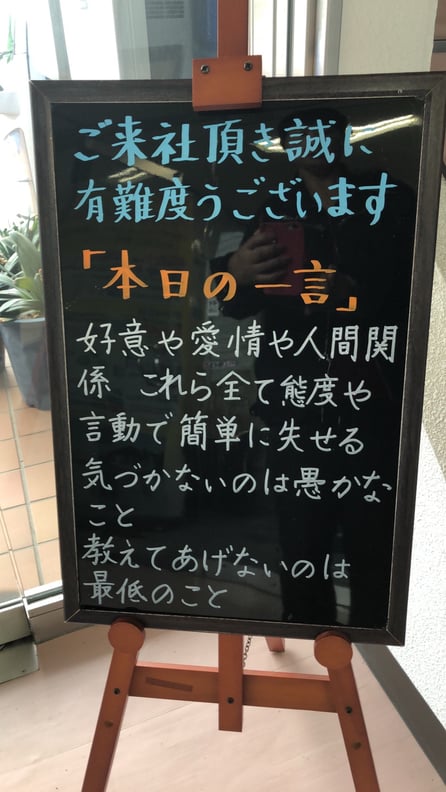 ご来社頂き誠に
有難度うございます
「本日の一言」
好意や愛情や人間関
係 これら全て態度や
言動で簡単に失せる
気づかないのは愚かな
こと
教えてあげないのは
最低のこと